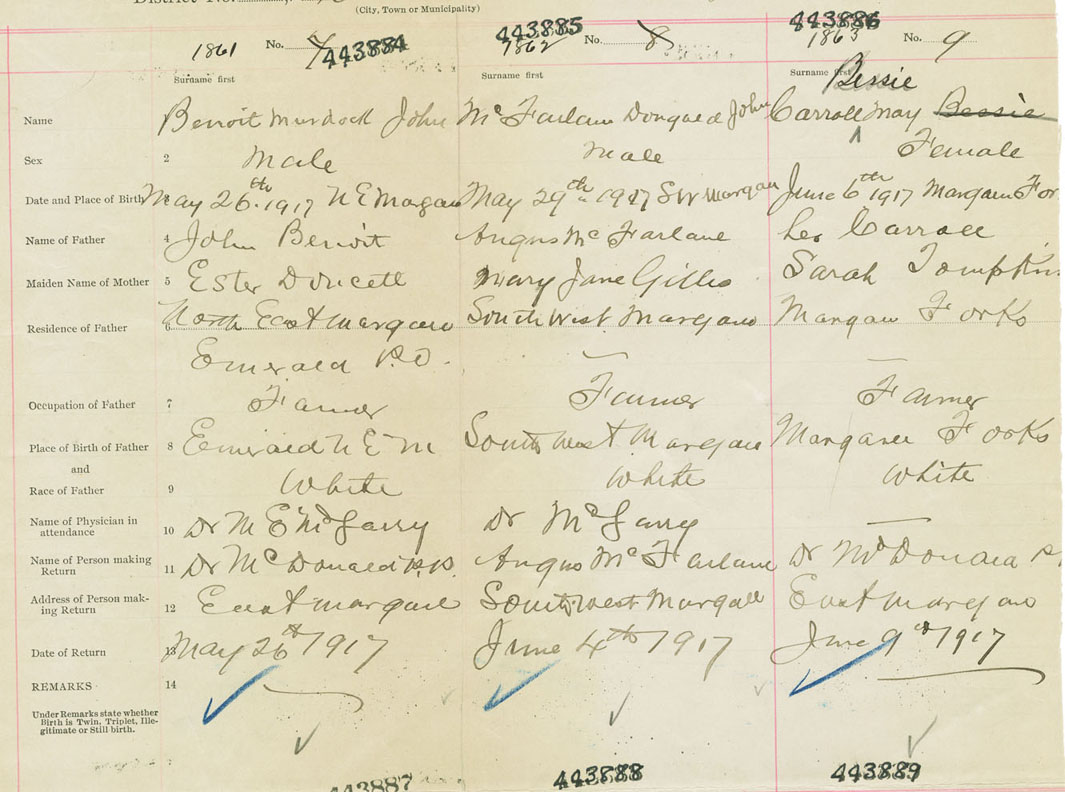 District No.
(City, Town or Municipality)
443884 443885 443886
1861 No. 7 1862 No. 8 1863 No. 9
Surname first Surname first Surname first
Bessie
Name Benoit Murdock John Mc Farlane Dougald John Carroll May Bessie
Sex 2 Male Male Female
Date and Place of Birth May 26th 1917 N E Margaree May 29th 1917 S W Margaree June 6th 1917 Margaree For
Name of Father 4 John Benoit Angus Mc Farlane Carroll
Maiden Name of Mother 5 Ester Doucett Mary Jane Gillis Sarah Tompkin
Residence of Father 6 North East Margaree South West Margaree Margaree Forks
Emerald P.O.
Occupation of Father 7 Farmer Farmer Farmer
Place of Birth of Father 8 Emerald N E M South West Margaree Margaree Forks
and
Race of Father 9 White White White
Name of Physician in
attendance 10 Dr M E McGarry Dr McGarry —
Name of Person making
Return 11 Dr McDonald P.P. Angus Mc Farlane Dr McDonald P.
Address of Person mak-
ing Return 12 East Margaree South West Margaree East Margaree
Date of Return 13 May 26th 1917 June 4th 1917 June 9th 1917
REMARKS 14
Under Remarks state whether
Birth is Twin, Triplet, Ille-
gitimate or Still birth.
443887 443888 443889